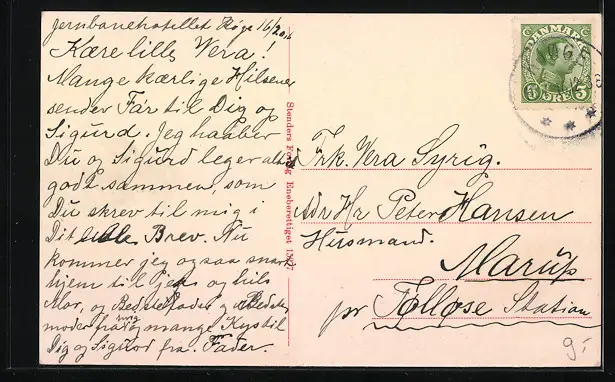 Jernbanehotellet Køge 16/2 
Kære lille Vera!
Mange kærlige Hilsener
sender Far til Dig og
Sigurd. Jeg haaber
Du og Sigurd leger altid
godt sammen, som
Du skrev til mig i
Dit Brev. Nu
kommer jeg og saa snart
hjem til jer og hils
Mor, og Bedstefader og Bedste-
moder fra mig og mange Kys til
Dig og Sigurd fra. Fader.
Stenders Forlag Eneberettiget
DANMARK
5 ØRE 5
Frk. Vera Syrig.
Adr Hr Peter Hansen
Husmand.
Marup
pr Tølløse Station
9-